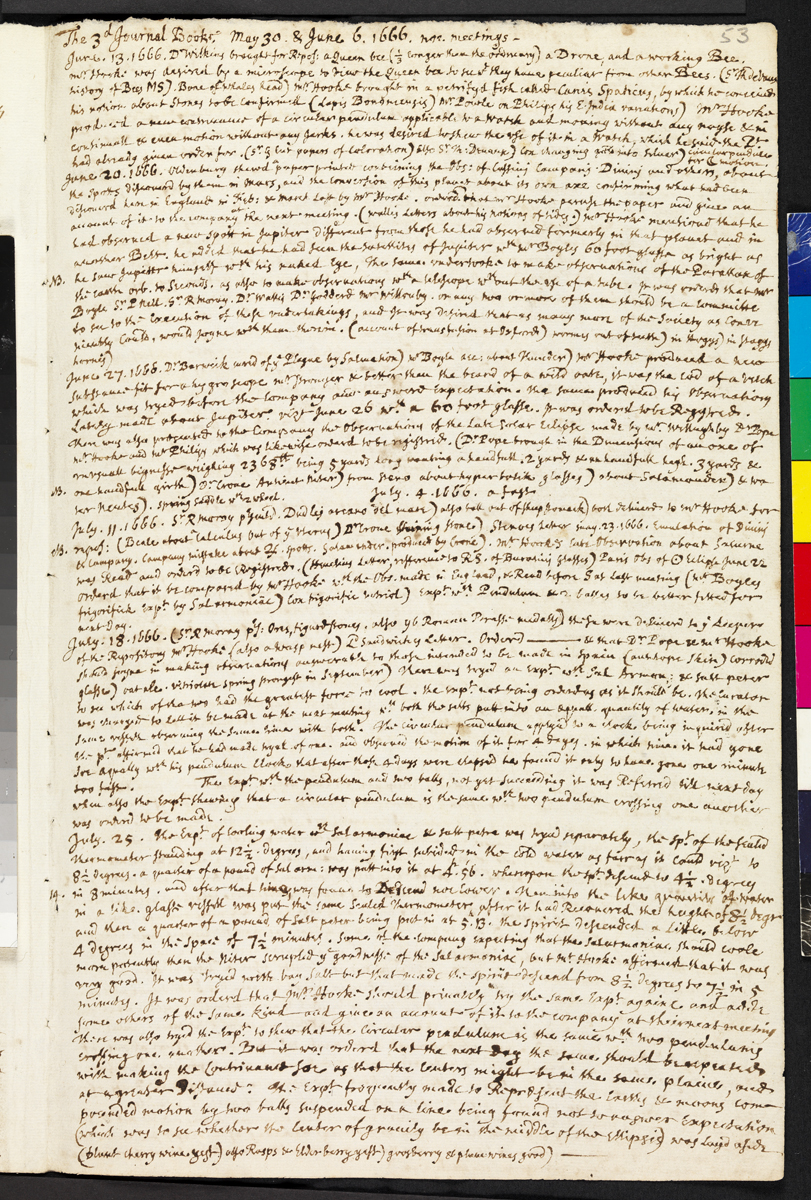 53
The 3d Journal Booke. May 30. & June 6. 1666. noe meetings -
June. 13. 1666. Dr Wilkins brought for Repos: a Queen bee (1/2 longer than the ordinary) a Drone, and a working Bee.
mr Hooke was desired by a microscope to view the Queen bee to see wt they have peculiar from other Bees.
history of Bees MS). Bone of whales head) mr Hooke brought in a petrifyd fish called Canis by which he conceivd
his notion about stones to be confirmed (Lapis Bononiensis) mr Povele on Philips his E. India variations) mr Hooke
produced a new contrivance of a circular pendulum applicable to a watch and moveing without any noyse & in
continuall & even motion without any Jerks. he was desired to shew the use of it in a watch, which he said the Pt
had already given order for. of Coloration) also Sr Th: changing into silver) circular pendule for motion.
June 20. 1666. Oldenburg shewd paper printed containing the Obs: of Cassini Campani Divini and others, about
the spots discoverd by them in Mars, and the conversion of this planet about its own axe confirming what had been
discoverd here in England in Feb: & March last by mr Hooke. orderd that mr Hooke peruse the paper and give an
account of it to the company the next meeting. (Wallis letters about his notions of tides) mr Hooke mentiond that he
had observed a new spott in Jupiter different from those he had observed formerly in that planet and in
another Belt. he added that he had seen the satellites of Jupiter wth mr Boyles 60 foot glasse as bright as
NB. he saw Jupiter himself with his naked Eye, The same undertooke to make observations of the Parallax of
the earth orb. to seconds. as also to make observations wth a telescope wthout the use of a tube. It was orderd that mr
Boyle Sr P Neil. Sr R moray. Dr Wallis Dr Goddard mr Willoughby. or any two or more of them should be a Committe
to see to the execution of these undertakings, and it was desired that as many more of the Society as conve
niently could, would joyne wth them therein. (account of transfusion at Oxford) wormes out of teeth) in
hornes)
June 27. 1666. Dr Barwick cured of ye Plague by Salivation) mr Boyle about Thunder) mr Hooke produced a new
substance fit for a hygroscope much stronger & better than the beard of a wild oate, it was the cod of a vetch
which was tryed before the company and answerd expectation. the same produced his observations
Lately made about Jupiter vizt June 26 wth a 60 foot glasse. it was orderd to be Registred.
There was also presented to the Company the observations of the Late Solar Eclipse made by mr Willughby Dr Pope
mr Hooke and mr Philips which was likewise orderd to be registred. (Dr Pope brough in the Dimensions of an one of
unusuall bignesse weighing 2368 being 5 yards long wanting a handfull. 2 yards & an handfull high. 3 yards &
NB. one handfull girth) Dr Crone from Steno about hyperbolike glasses) about Salamander) & wa
ter newts). spring saddle wth 2 wheel. July. 4. 1666. a fast
July. 11. 1666. Sr R moray psent. Dudleys arcano del mare) also delivered to mr Hooke for
NB. repos: (Beale about calculus out of Dr Crone stone) Stenoes letter may. 23. 1666. Emulation of Divini
& Campany. Campany mistake about ♃. spotts. Salamander. produced by Crone). Mr Hookes late observation about Saturne
was Read and orderd to be Registred. (Hauching Letter, reference to R.S. of Burning Glasses) Paris obs of ☉ Eclipse June 22
orderd that it be compared by mr Hooke wth the Obs. made in England, & Read before ye last meeting (mr Boyles
frigorifick Expt by Salarmoniac) Con frigorific vitriol) Expt wth Pendulum & 2. balles to be better fitted for
next day.
July: 18. 1666. (Sr R moray pst: ores, figurd stones. also 96 Roman Brasse medalls) these were deliverd to ye keeper
of the Repository mr Hooke (also a wasp nest) E. Sandwichs Letter. Ordered ——— & that Dr Pope & mr Hooke
should joyne in making observations answerable to those intended to be made in Spain (antelope skin) corroded
glasse) oat ale. vitriolat spring strongest in September) There was tryed an Expt wth Sal Armon: & salt peter
to see which of the two had the greatest force to cool. the expt. not being orderd as it should be. the Curator
was charged to let it be made at the next meeting wth both the salts put into an equall quantity of water, in the
same vessell observing the same time with both. The circular pendulum applyd to a clock being inquired after
the pt affirmed that he had made tryal of one. and observd the motion of it for 4 dayes. in which time it had gone
soe equally wth his pendulum Clock that after those 4 days were elapsed he found it only to have gone one minute
too fast. The Expt wth the pendulum and two balls, not yet succeeding it was Referred till next day
when also the Expt shewing that a circular pendulum is the same wth two pendulum crossing one another
was orderd to be made.
July. 25. The Expt of cooling water wth Salarmoniac & salt petre was tryd separately, the spt. of the seald
thermometer standing at 12 1/2 degrees, and having first subsided in the cold water as farr as it could vizt to
8 1/2 degrees. a quarter of a pound of sal arm: was putt into it at 4h. 56. whereupon the spt. descend to 4 1/2 degrees
14. in 8 minutes. and after that time was found to Descend noe lower. then into the like quantity of water
in a like glasse vessell was put the same Sealed thermometer after it had Recovered the height of 8 1/2 degr
and then a quarter of a pound of salt peter being put in at 5h. 13. the spirit descended a little below
4 degrees in the space of 7 1/2 minutes. Some of the company expecting that the Salarmoniac should coole
more potently than the Niter scrupled ye goodnesse of the Salarmoniac, but mr Hooke affirmed that it was
very good. It was tryed with bay Salt but that made the spirit descend from 8 1/2 degrees to 7 1/2 in 5
minutes. It was orderd that mr Hooke should privatly try the same Expt againe and adde
some others of the same kind and give an account of it to the company at their next meeting
There was also tryed the Expt to shew that the circular pendulum is the same wth two pendulums
crossing one another. But it was ordered that the next day the same should be repeated
with making the Contrivance soe as that the Centers might be in the same plaine, and
at a greater Distance: The Expt frequently made to Represent the Earths & moons com
pounded motion by two balls suspended on a line being found not to answer Expectation
(which was to see whether the Center of gravity be in the middle of the Ellipsis) was layd aside
(blunt cherry wine yest) also Rasps & Elderberry yest) goosberry & plume wines good) ——